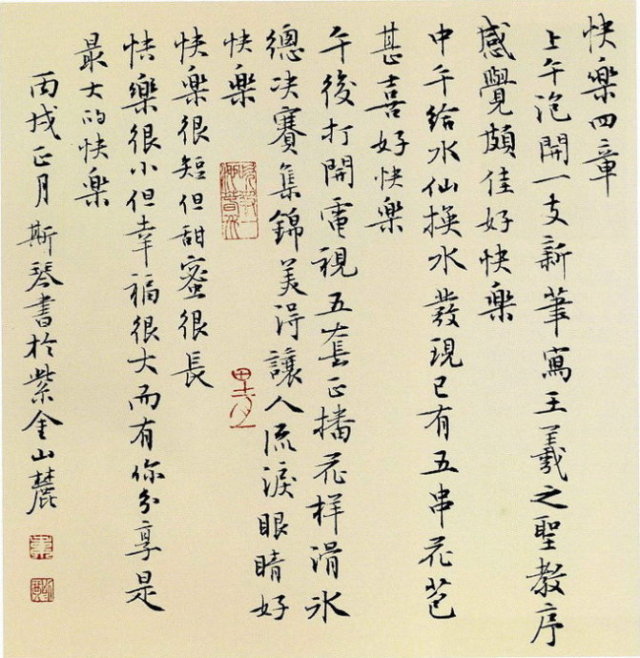 快樂四章
上午泡開一支新筆寫王羲之聖教序
感覺頗佳好快樂
中午給水仙換水發現已有五串花苞
甚喜好快樂
午後打開電視五套正播花样滑冰
總决賽集錦美得讓人流淚眼睛好
快樂
快樂很短但甜蜜很長
快樂很小但幸福很大而有你分享是
最大的快樂
丙戌正月斯琴書於紫金山麓